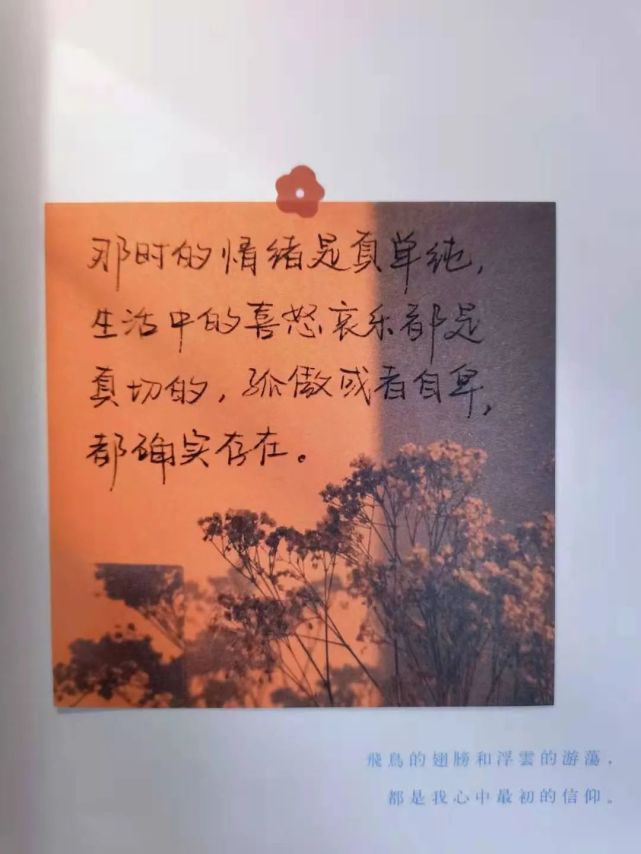 那时的情绪是真单纯,
生活中的喜怒哀乐都是
真切的，孤傲或者自卑,
都确实存在。
飛鳥的翅膀和浮雲的游蕩，
都是我心中最初的信仰。